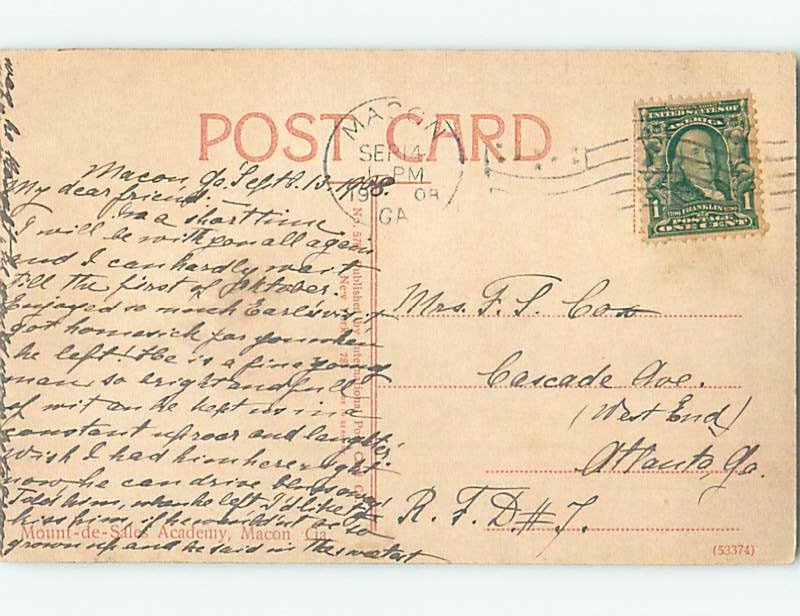 POST CARD
MACON
SEP 14
PM
1908
GA
UNITED STATES OF
AMERICA
1
FRANKLIN
1
POSTAGE
ONE CENT
Macon, Ga. Sept. 13. 1908.
My dear friend:
In a short time
I will be with you all again
and I can hardly wait
till the first of Oktober.
Enjoyed so much Earl's visit
got homesick for you when
he left. He is a fine young
man, so bright and full
of wit and he kept us in a
constant uproar and laughter.
Wish I had him here right
now, he can drive blues away!
Told him, when he left, I'd like to
kiss him, if he wouldn't be so
grown up and he said in the sweetest
Mrs. F. S. Cox
Cascade Ave.
(West End)
Atlanta, Ga.
R. F. D. # 7.
Published by International Post Card Co.
New York
Mount-de-Sales Academy, Macon Ga.
(53374)